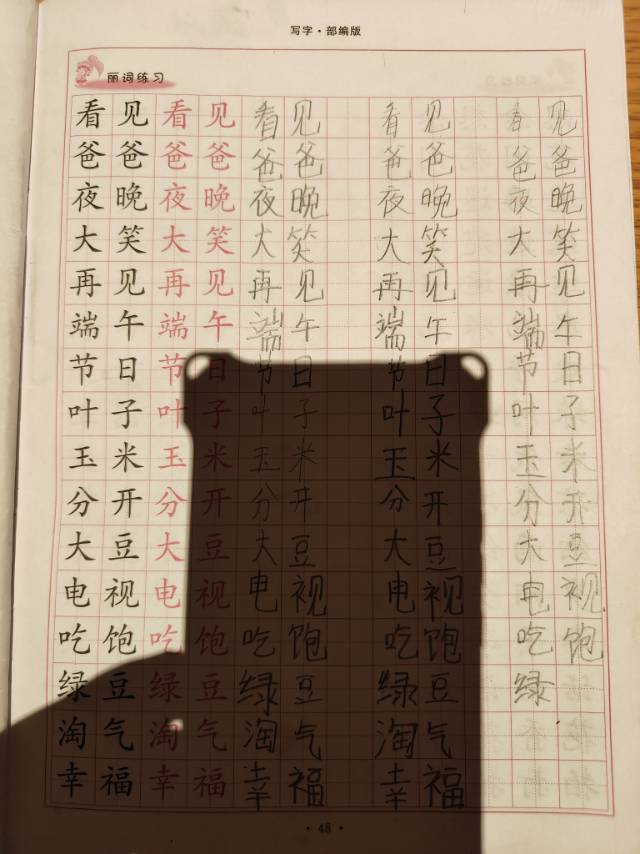 写字·部编版
丽词练习
看见看见看见 看见 看见
爸爸爸爸爸爸 爸爸 爸爸
夜晚夜晚夜晚 夜晚 夜晚
大笑大笑大笑 大笑 大笑
再见再见再见 再见 再见
端午端午端午 端午 端午
节日节日节日 节日 节日
叶子叶子叶子 叶子 叶子
玉米玉米玉米 玉米 玉米
分开分开分开 分开 分开
大豆大豆大豆 大豆 大豆
电视电视电视 电视 电视
吃饱吃饱吃饱 吃饱 吃饱
绿豆绿豆绿豆 绿豆 绿
淘气淘气淘气 淘气
幸福幸福幸福 幸福
·48·